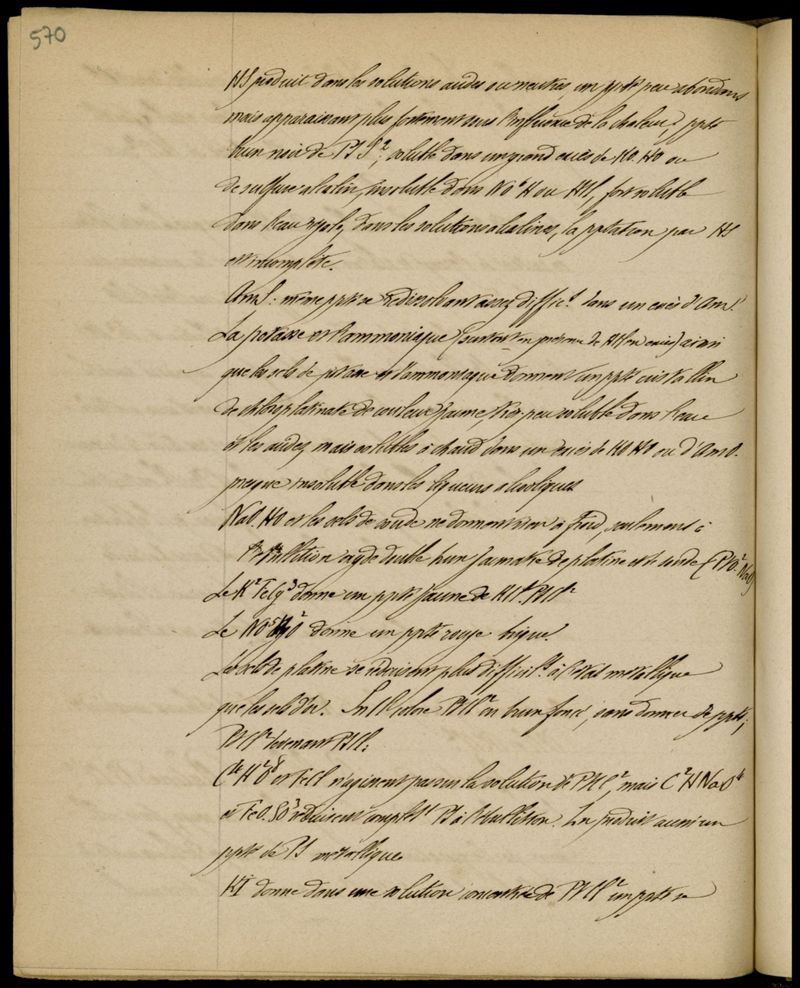 570
HS produit dans les solutions acides ou neutres un ppté peu abondant
mais apparaissant plus fortement sous l'influence de la chaleur, ppté
brun noir de PtS², soluble dans un grand excès de KO.HO ou
de sulfure alcalin, insoluble dans NO⁵H ou HCl, fort soluble
dans l'eau régale, dans les solutions alcalines, la pptation par HS
est incomplète.
AmS : même ppté se redissolvant assez difficilt dans un excès d'AmS
La potasse et l'ammoniaque (surtout en présence de HCl en excès) ainsi
que les sels de potasse et d'ammoniaque donnent un ppté cristallin
de chloroplatinate de couleur jaune, très peu soluble dans l'eau
et les acides, mais solubles à chaud dans un excès de KO HO ou d'AmO.
presque insoluble dans les liqueurs alcooliques
NaO.HO et les sels de soude ne donnent rien à froid, seulement à
l'ébullition oxyde double brun jaunâtre de platine et de soude (PtO².NaO)
Le K²FeCy³ donne un ppté jaune de KCl.PtCl²
Le donne un ppté rouge brique.
Les sels de platine se réduisent plus difficilt à l'état métallique
que les sels d'or. SnCl colore PtCl² en brun foncé, sans donner de ppté,
PtCl² devenant PtCl.
et FeCl n'agissent pas sur la solution de PtCl², mais
et FeO.SO³ réduisent complt Pt à l'ébullition. Zn produit aussi un
ppté de Pt métallique
KI donne dans une solution concentrée de PtCl² un ppté